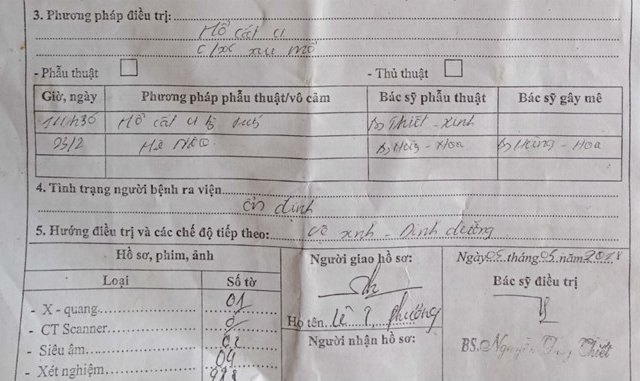 3. Phương pháp điều trị:
Mổ cắt u
- Phẫu thuật
- Thủ thuật
Giờ, ngày Phương pháp phẫu thuật/vô cảm Bác sỹ phẫu thuật Bác sỹ gây mê
14h30 Mổ cắt u Thiết - Xinh
23/2 Mê NKQ Hùng - Hoa Hùng - Hoa
4. Tình trạng người bệnh ra viện
ổn định
5. Hướng điều trị và các chế độ tiếp theo: Vệ sinh - Dinh dưỡng
Hồ sơ, phim, ảnh
Loại Số tờ
- X - quang 01
- CT Scanner
- Siêu âm 02
- Xét nghiệm 04
Người giao hồ sơ:
Họ tên Lê T. Phương
Người nhận hồ sơ:
Ngày 05 tháng 05 năm 2018
Bác sỹ điều trị
BS. Nguyễn Duy Thiết